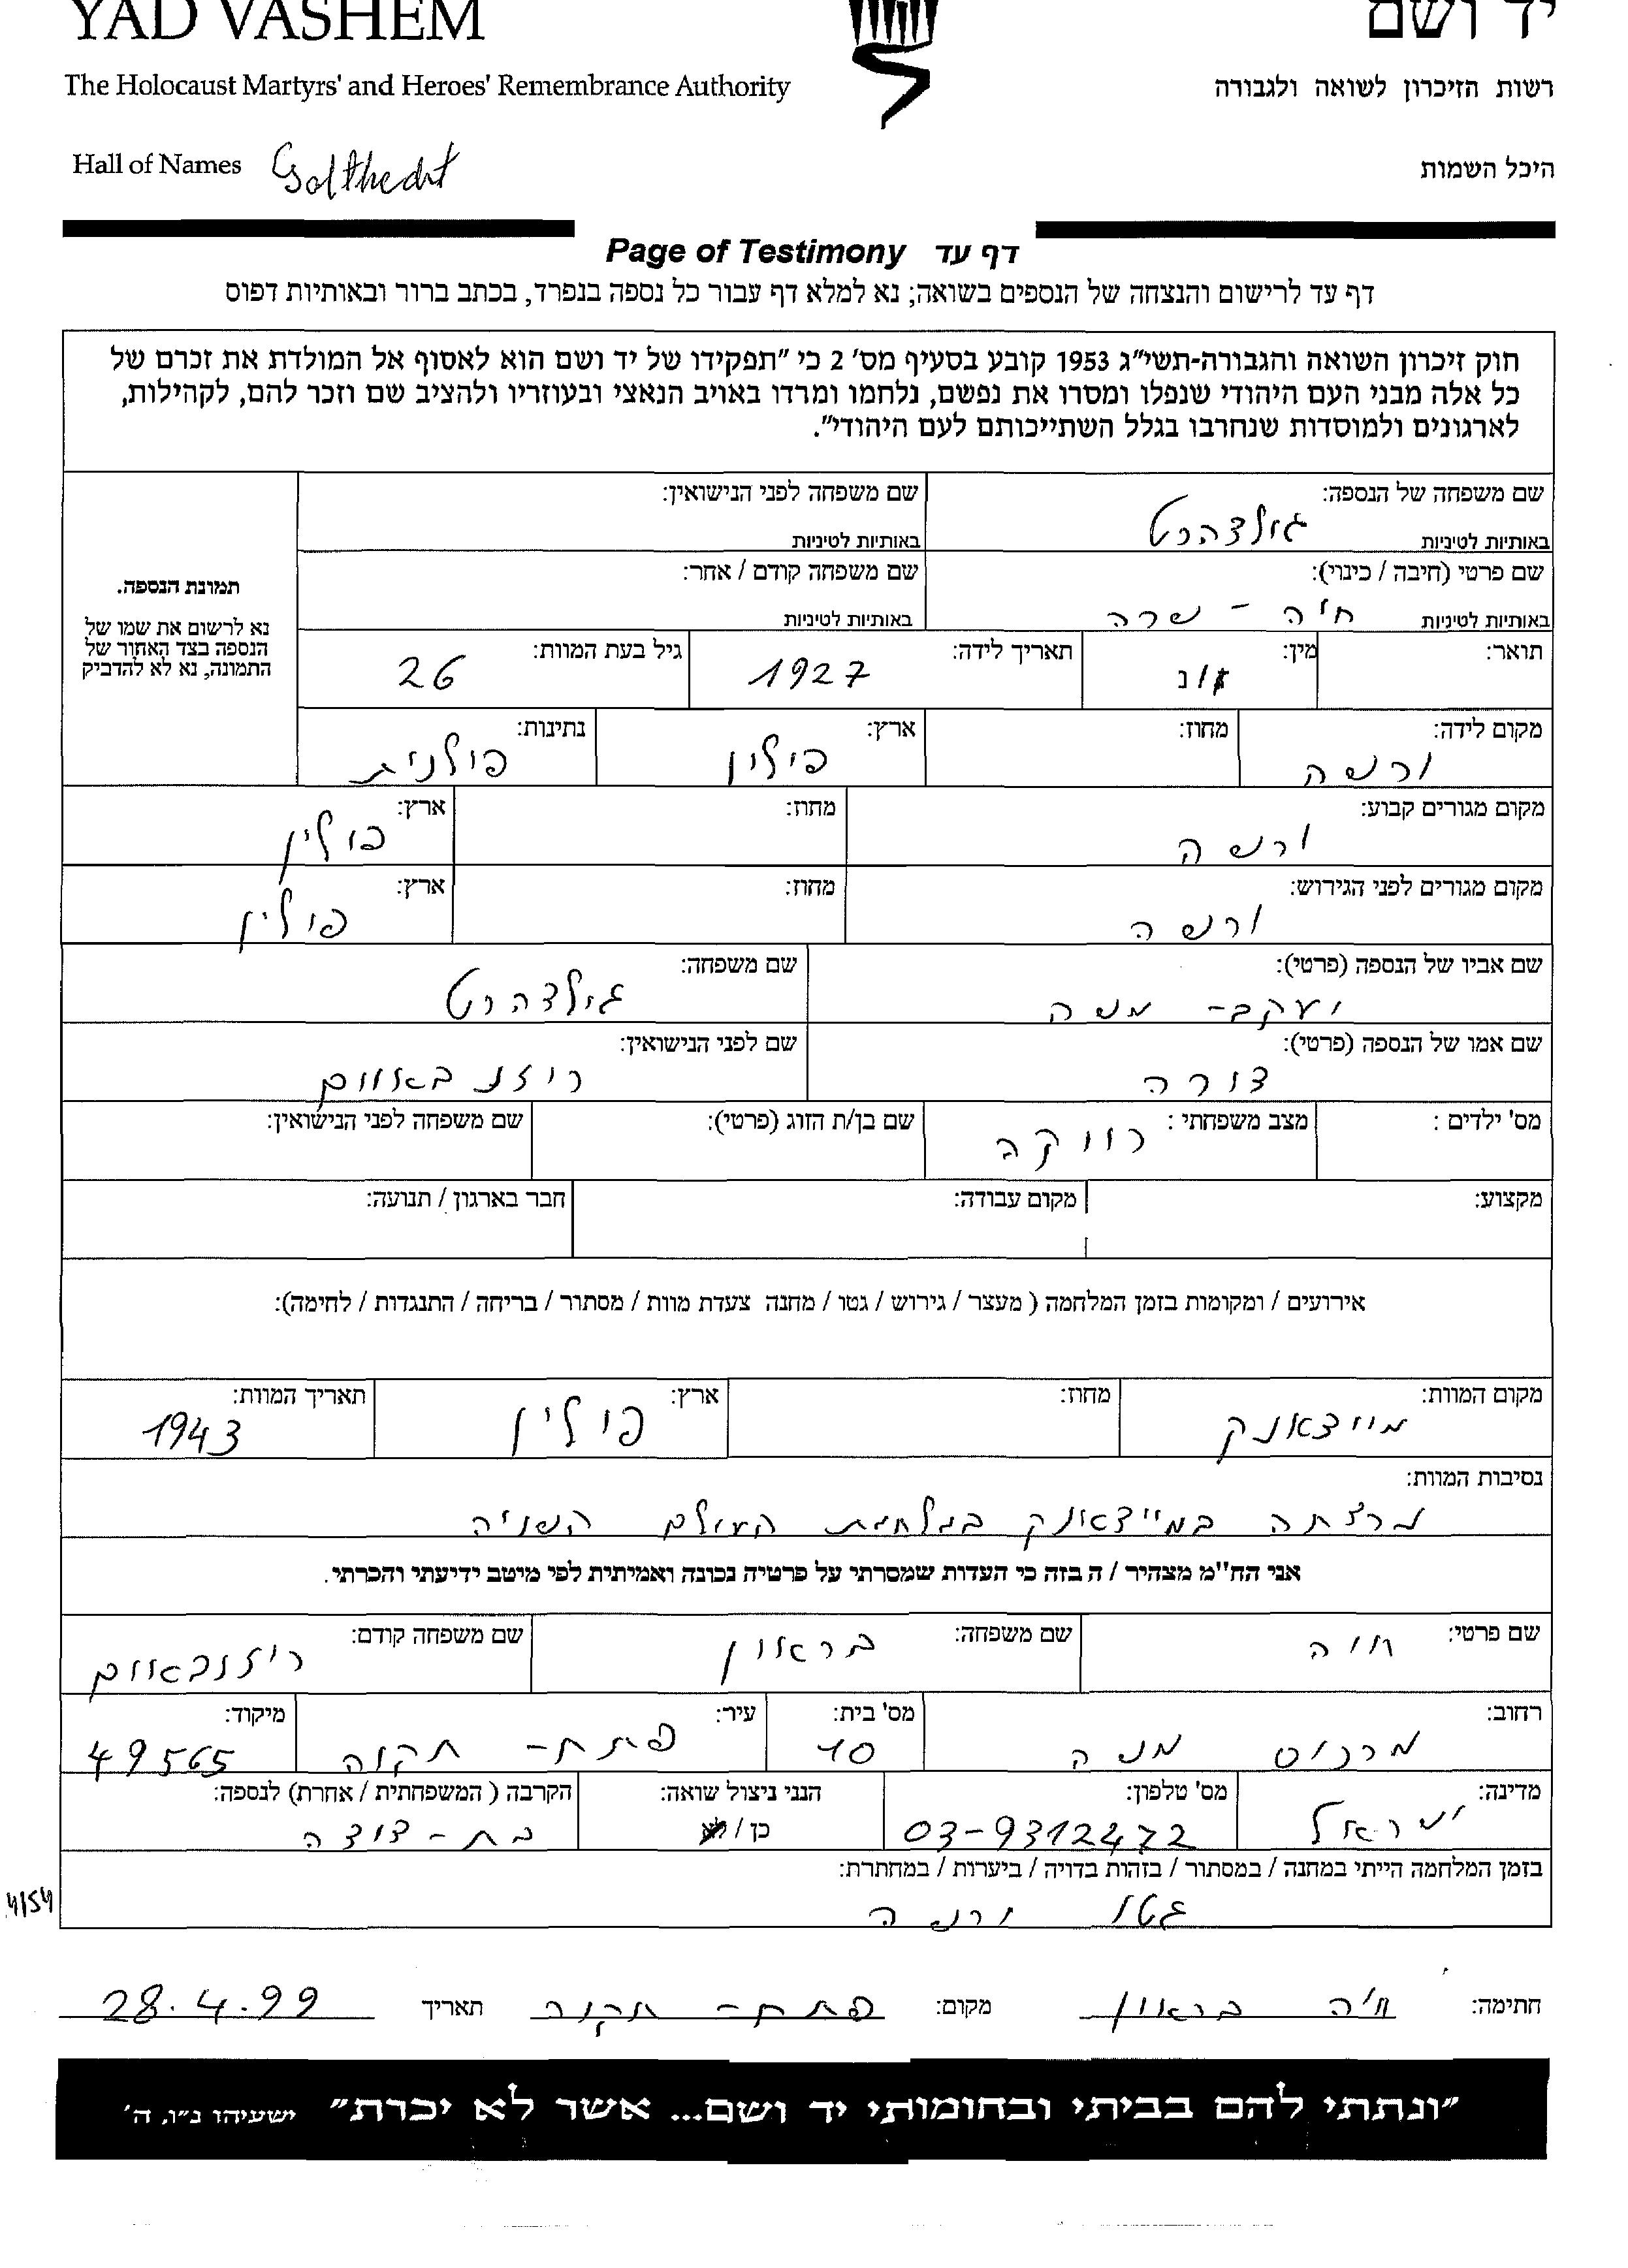 YAD VASHEM יד ושם
The Holocaust Martyrs' and Heroes' Remembrance Authority רשות הזיכרון לשואה ולגבורה
Hall of Names היכל השמות
Page of Testimony דף עד
דף עד לרישום והנצחה של הנספים בשואה; נא למלא דף עבור כל נספה בנפרד, בכתב ברור ובאותיות דפוס
חוק זיכרון השואה והגבורה-תשי״ג 1953 קובע בסעיף מס' 2 כי ״תפקידו של יד ושם הוא לאסוף אל המולדת את זכרם של
כל אלה מבני העם היהודי שנפלו ומסרו את נפשם, נלחמו ומרדו באויב הנאצי ובעוזריו ולהציב שם וזכר להם, לקהילות,
לארגונים ולמוסדות שנחרבו בגלל השתייכותם לעם היהודי״.
שם משפחה של הנספה: שם משפחה לפני הנישואין:
גולדהרט
באותיות לטיניות באותיות לטיניות
שם פרטי (חיבה / כינוי): שם משפחה קודם / אחר:
חיה - שרה
באותיות לטיניות באותיות לטיניות
תמונת הנספה.
נא לרשום את שמו של
הנספה בצד האחור של
התמונה, נא לא להדביק
תואר: מין: / נ תאריך לידה: 1927 גיל בעת המוות: 26
מקום לידה: ורשה מחוז: ארץ: פולין נתינות: פולנית
מקום מגורים קבוע: ורשה מחוז: ארץ: פולין
מקום מגורים לפני הגירוש: ורשה מחוז: ארץ: פולין
שם אביו של הנספה (פרטי): יעקב - משה שם משפחה: גולדהרט
שם אמו של הנספה (פרטי): דורה שם לפני הנישואין: רוזנבאום
מס' ילדים : מצב משפחתי : רווקה שם בן/ת הזוג (פרטי): שם משפחה לפני הנישואין:
מקצוע: מקום עבודה: חבר בארגון / תנועה:
אירועים / ומקומות בזמן המלחמה ( מעצר / גירוש / גטו / מחנה צעדת מוות / מסתור / בריחה / התנגדות / לחימה):
מקום המוות: מיידאנק מחוז: ארץ: פולין תאריך המוות: 1943
נסיבות המוות:
נרצחה במיידאנק במלחמת העולם השניה
אני הח״מ מצהיר / ה בזה כי העדות שמסרתי על פרטיה נכונה ואמיתית לפי מיטב ידיעתי והכרתי.
שם פרטי: חיה שם משפחה: בראון שם משפחה קודם: רוזנבאום
רחוב: מרכוס משה מס' בית: 10 עיר: פתח - תקוה מיקוד: 49565
מדינה: ישראל מס' טלפון: 03-9312472 הנני ניצול שואה: כן / לא הקרבה ( המשפחתית / אחרת) לנספה: בת - דודה
בזמן המלחמה הייתי במחנה / במסתור / בזהות בדויה / ביערות / במחתרת:
גטו ורשה
חתימה: חיה בראון מקום: פתח - תקוה תאריך 28.4.99
״ונתתי להם בביתי ובחומותי יד ושם... אשר לא יכרת״ ישעיהו נ״ו, ה'